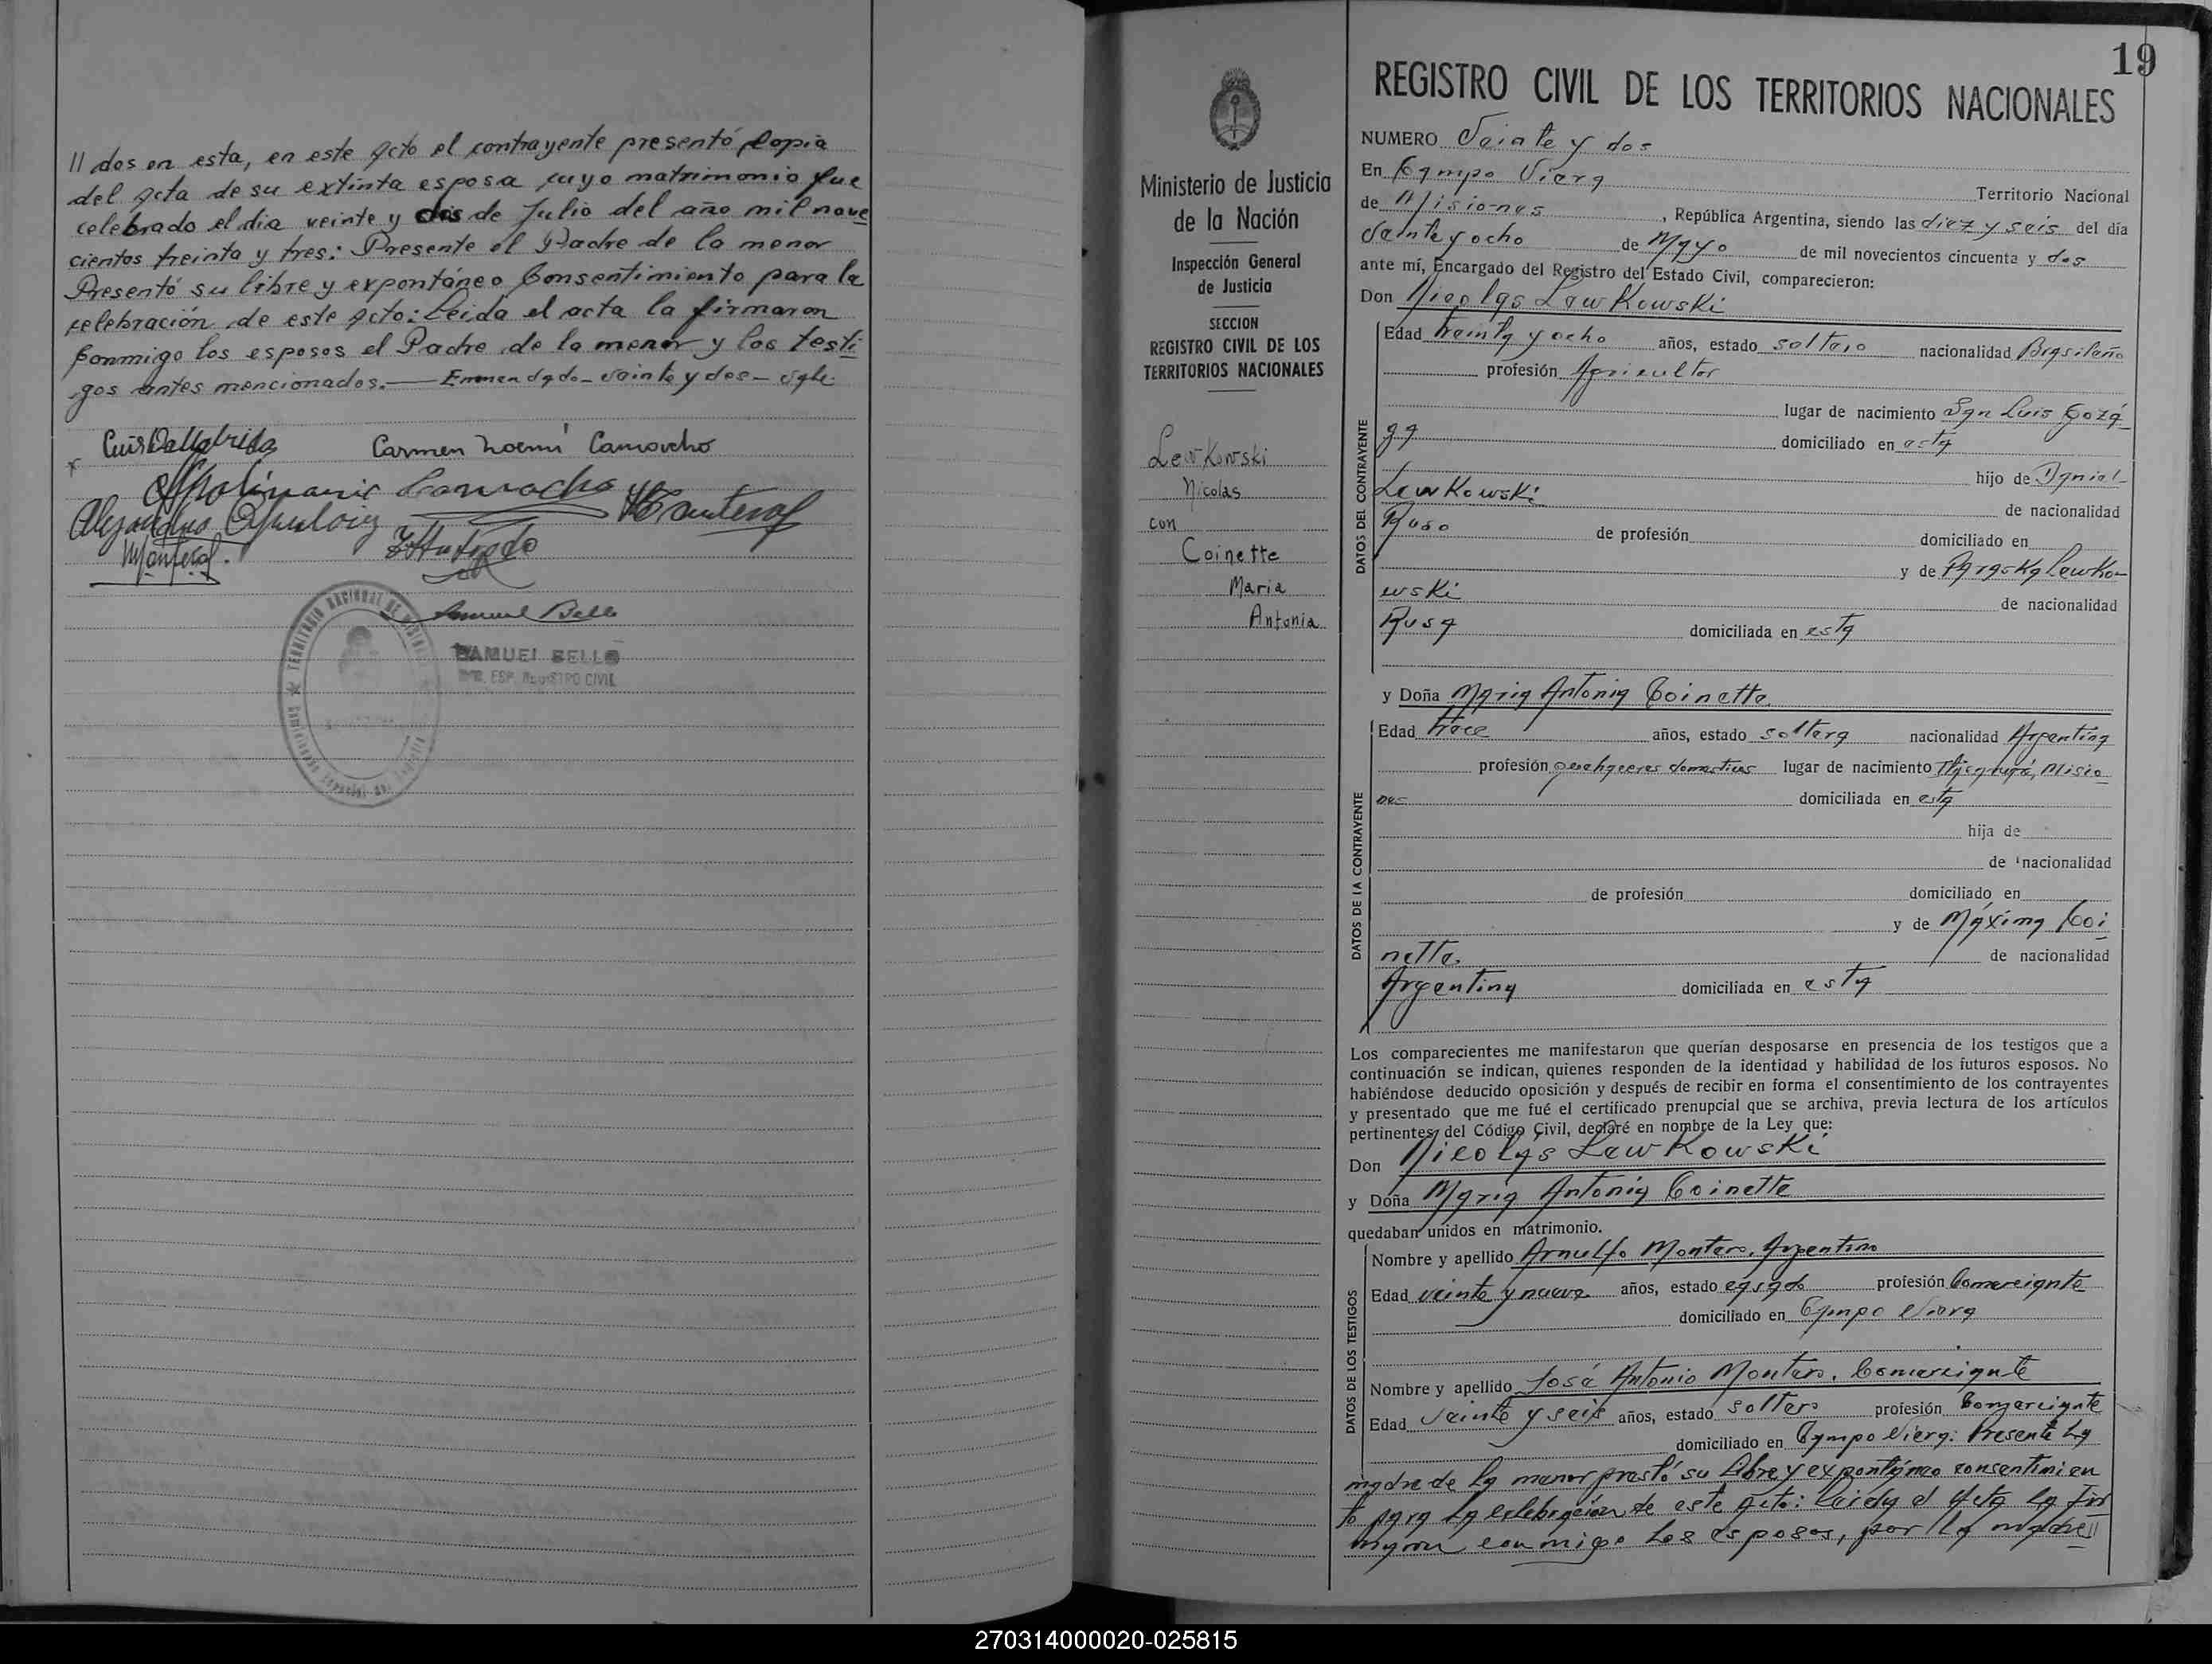 // dos en esta, en este acto el contrayente presentó Copia
del acta de su extinta esposa cuyo matrimonio fue
celebrado el dia veinte y dos de Julio del año mil nove
cientos treinta y tres: Presente el Padre de la menor
Presentó su libre y expontáneo Consentimiento para la
celebración de este acto: Leida el acta la firmaron
Conmigo los esposos el Padre de la menor y los testi
gos antes mencionados.— Enmendado - veinte y dos - vale
Carmen Noemi Camacho
Samuel Bello
SAMUEL BELLO
REGISTRO CIVIL
19
Ministerio de Justicia
de la Nación
Inspección General
de Justicia
SECCION
REGISTRO CIVIL DE LOS
TERRITORIOS NACIONALES
Lewkowski
Nicolas
con
Coinette
Maria
Antonia
REGISTRO CIVIL DE LOS TERRITORIOS NACIONALES
NUMERO Veinte y dos
En Campo Viera Territorio Nacional
de Misiones, República Argentina, siendo las diez y seis del día
veinte y ocho de Mayo de mil novecientos cincuenta y dos
ante mí, Encargado del Registro del Estado Civil, comparecieron:
Don Nicolas Lewkowski
DATOS DEL CONTRAYENTE
Edad treinta y ocho años, estado soltero nacionalidad Brasileño
profesión Agricultor
lugar de nacimiento San Luis Gonza
ga domiciliado en esta
hijo de
Lewkowski de nacionalidad
Ruso de profesión domiciliado en
y de Lewko-
wski de nacionalidad
Rusa domiciliada en esta
y Doña Maria Antonia Coinette
DATOS DE LA CONTRAYENTE
Edad trece años, estado soltera nacionalidad Argentina
profesión quehaceres domesticos lugar de nacimiento Misio
nes domiciliada en esta
hija de
de nacionalidad
de profesión domiciliado en
y de Máxima Coi
nette de nacionalidad
Argentina domiciliada en esta
Los comparecientes me manifestaron que querían desposarse en presencia de los testigos que a
continuación se indican, quienes responden de la identidad y habilidad de los futuros esposos. No
habiéndose deducido oposición y después de recibir en forma el consentimiento de los contrayentes
y presentado que me fué el certificado prenupcial que se archiva, previa lectura de los artículos
pertinentes del Código Civil, declaré en nombre de la Ley que:
Don Nicolas Lewkowski
y Doña Maria Antonia Coinette
quedaban unidos en matrimonio.
DATOS DE LOS TESTIGOS
Nombre y apellido Arnulfo Montero, Argentino
Edad veinte y nueve años, estado casado profesión Comerciante
domiciliado en Campo Viera
Nombre y apellido José Antonio Montero, Comerciante
Edad veinte y seis años, estado soltero profesión Comerciante
domiciliado en Campo Viera: Presente La
madre de la menor prestó su libre y expontáneo consentimien
to para la celebración de este acto: Leida el acta la fir
maron conmigo los esposos, por la madre //
270314000020-025815